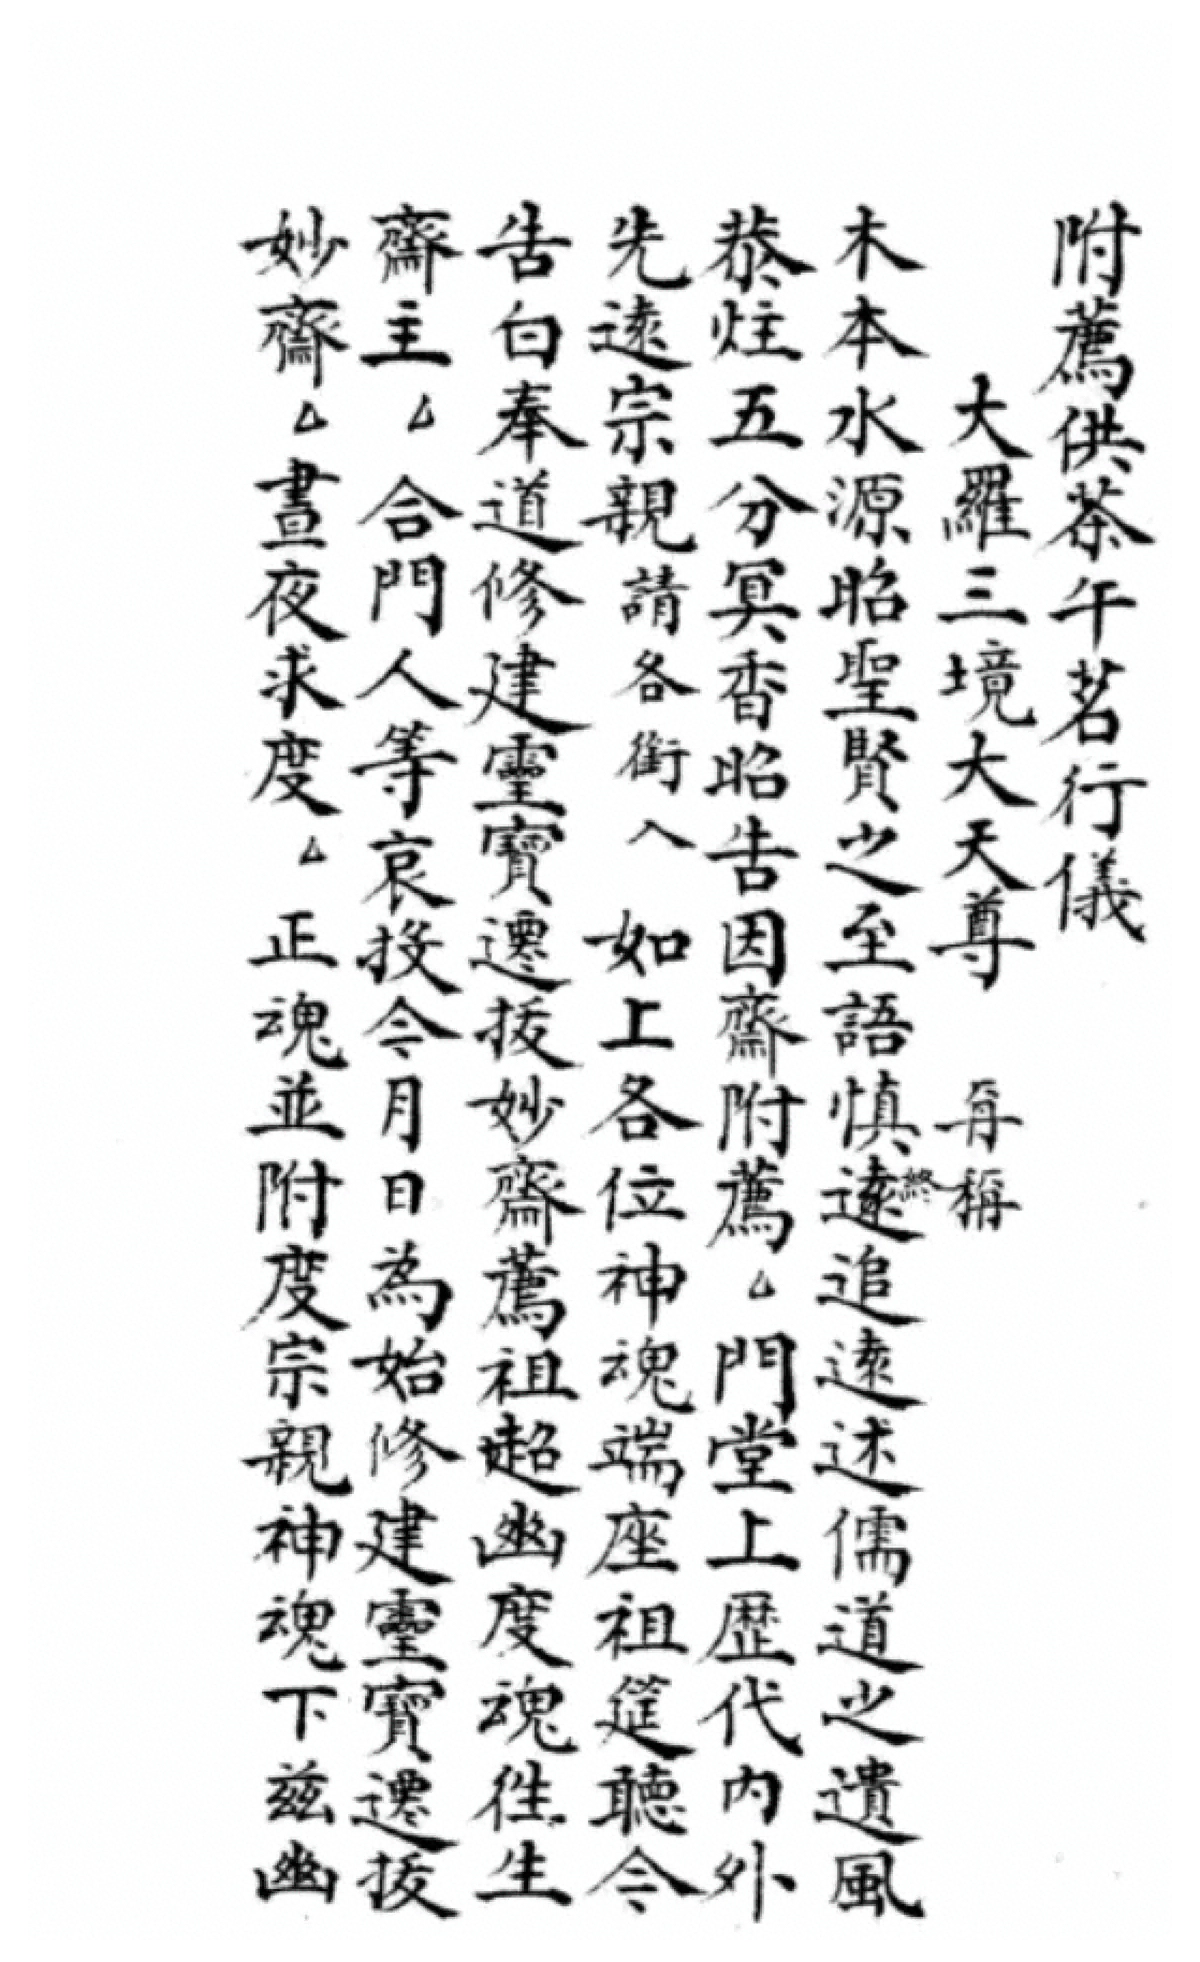 附薦供茶午茗行儀
大羅三境大天尊 再稱
木本水源昭聖賢之至語慎遠終追遠述儒道之遺風
恭炷五分冥香昭告因齋附薦厶門堂上歷代內外
先遠宗親請各衘入 如上各位神魂端座祖筵聽令
告白奉道修建靈寶遷拔妙齋薦祖超幽度魂徃生
齋主厶合門人等哀投今月日為始修建靈寶遷拔
妙齋厶晝夜求度厶正魂並附度宗親神魂下茲幽